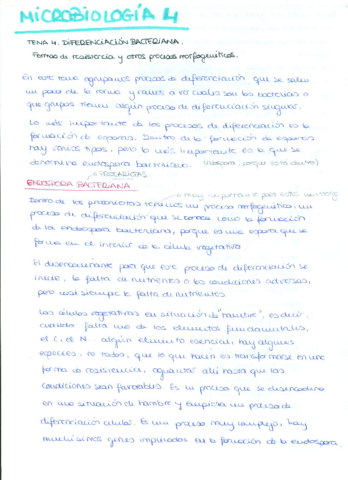 MICROBIOLOGÍA 4
TEMA 4. DIFERENCIACIÓN BACTERIANA.
Formas de resistencia y otros procesos morfogenéticos.
En este tema agrupamos procesos de diferenciación que se salen
un poco de la norma y vamos a ver cuales son las bacterias o
que grupos tienen algún proceso de diferenciación singular.
Lo más importante de los procesos de diferenciación es la
formación de esporas. Dentro de la formación de esporas
hay varios tipos, pero la más importante es la que se
denomina endospora bacteriana. (endospora, porque está dentro)
PROCARIOTAS
ENDOSPORA BACTERIANA
muy importante para este
Dentro de los procariotas tenemos un proceso morfogenético, un
proceso de diferenciación que se conoce como la formación
de la endospora bacteriana, porque es una espora que se
forma en el interior de la célula vegetativa.
El desencadenante para que este proceso de diferenciación se
inicie, la falta de nutrientes o las condiciones adversas,
pero casi siempre la falta de nutrientes.
Las células vegetativas en situación de "hambre", es decir,
cuando falta uno de los elementos fundamentales,
el C, el N... algún elemento esencial, hay algunas
especies, no todas, que lo que hacen es transformarse en una
forma de resistencia, "aguantar" ahí hasta que las
condiciones sean favorables. Es un proceso que se desencadena
en una situación de hambre y empieza un proceso de
diferenciación celular. Es un proceso muy complejo, hay
muchísimos genes implicados en la formación de la endospora.